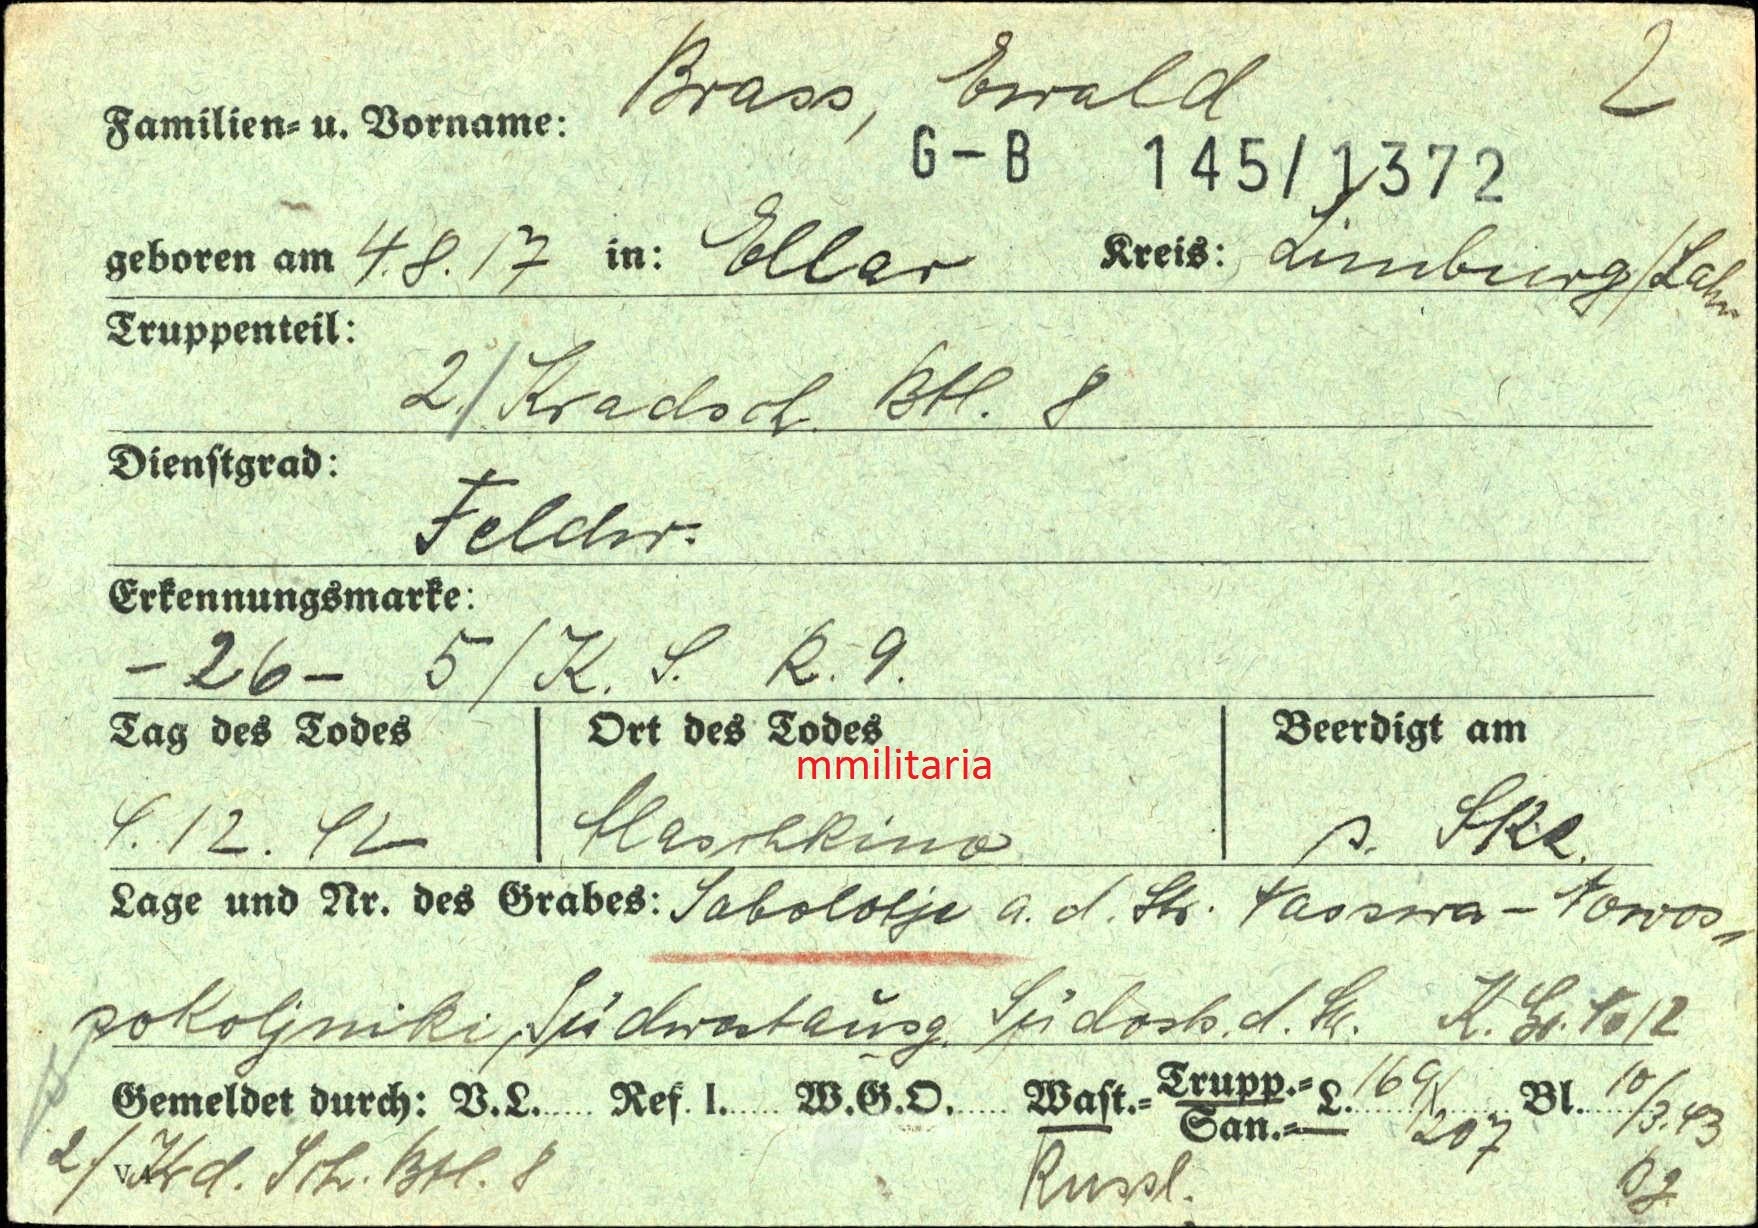 Familien- u. Vorname: Brass, Ewald 2
G-B 145/1372
geboren am 4.8.17 in: Ellar Kreis: Limburg/Lahn
Truppenteil:
2./Kradsch. Btl. 8
Dienstgrad:
Feldw.
Erkennungsmarke:
-26- 5/K. S. R. 9.
Tag des Todes Ort des Todes Beerdigt am
mmilitaria
4.12.42 Maschkino s. Skz.
Lage und Nr. des Grabes: Sabolotje a. d. Str. Wasswa - Nowos-
sokoljniki, Südwestausg. Südosts. d. Str. K. Gr. No 12
Gemeldet durch: V.L. Ref. I. W.G.O. Wast.- Trupp.- San.- L. 169/207 Bl. 10/3.43
2/Krd. Sch. Btl. 8 Russl.